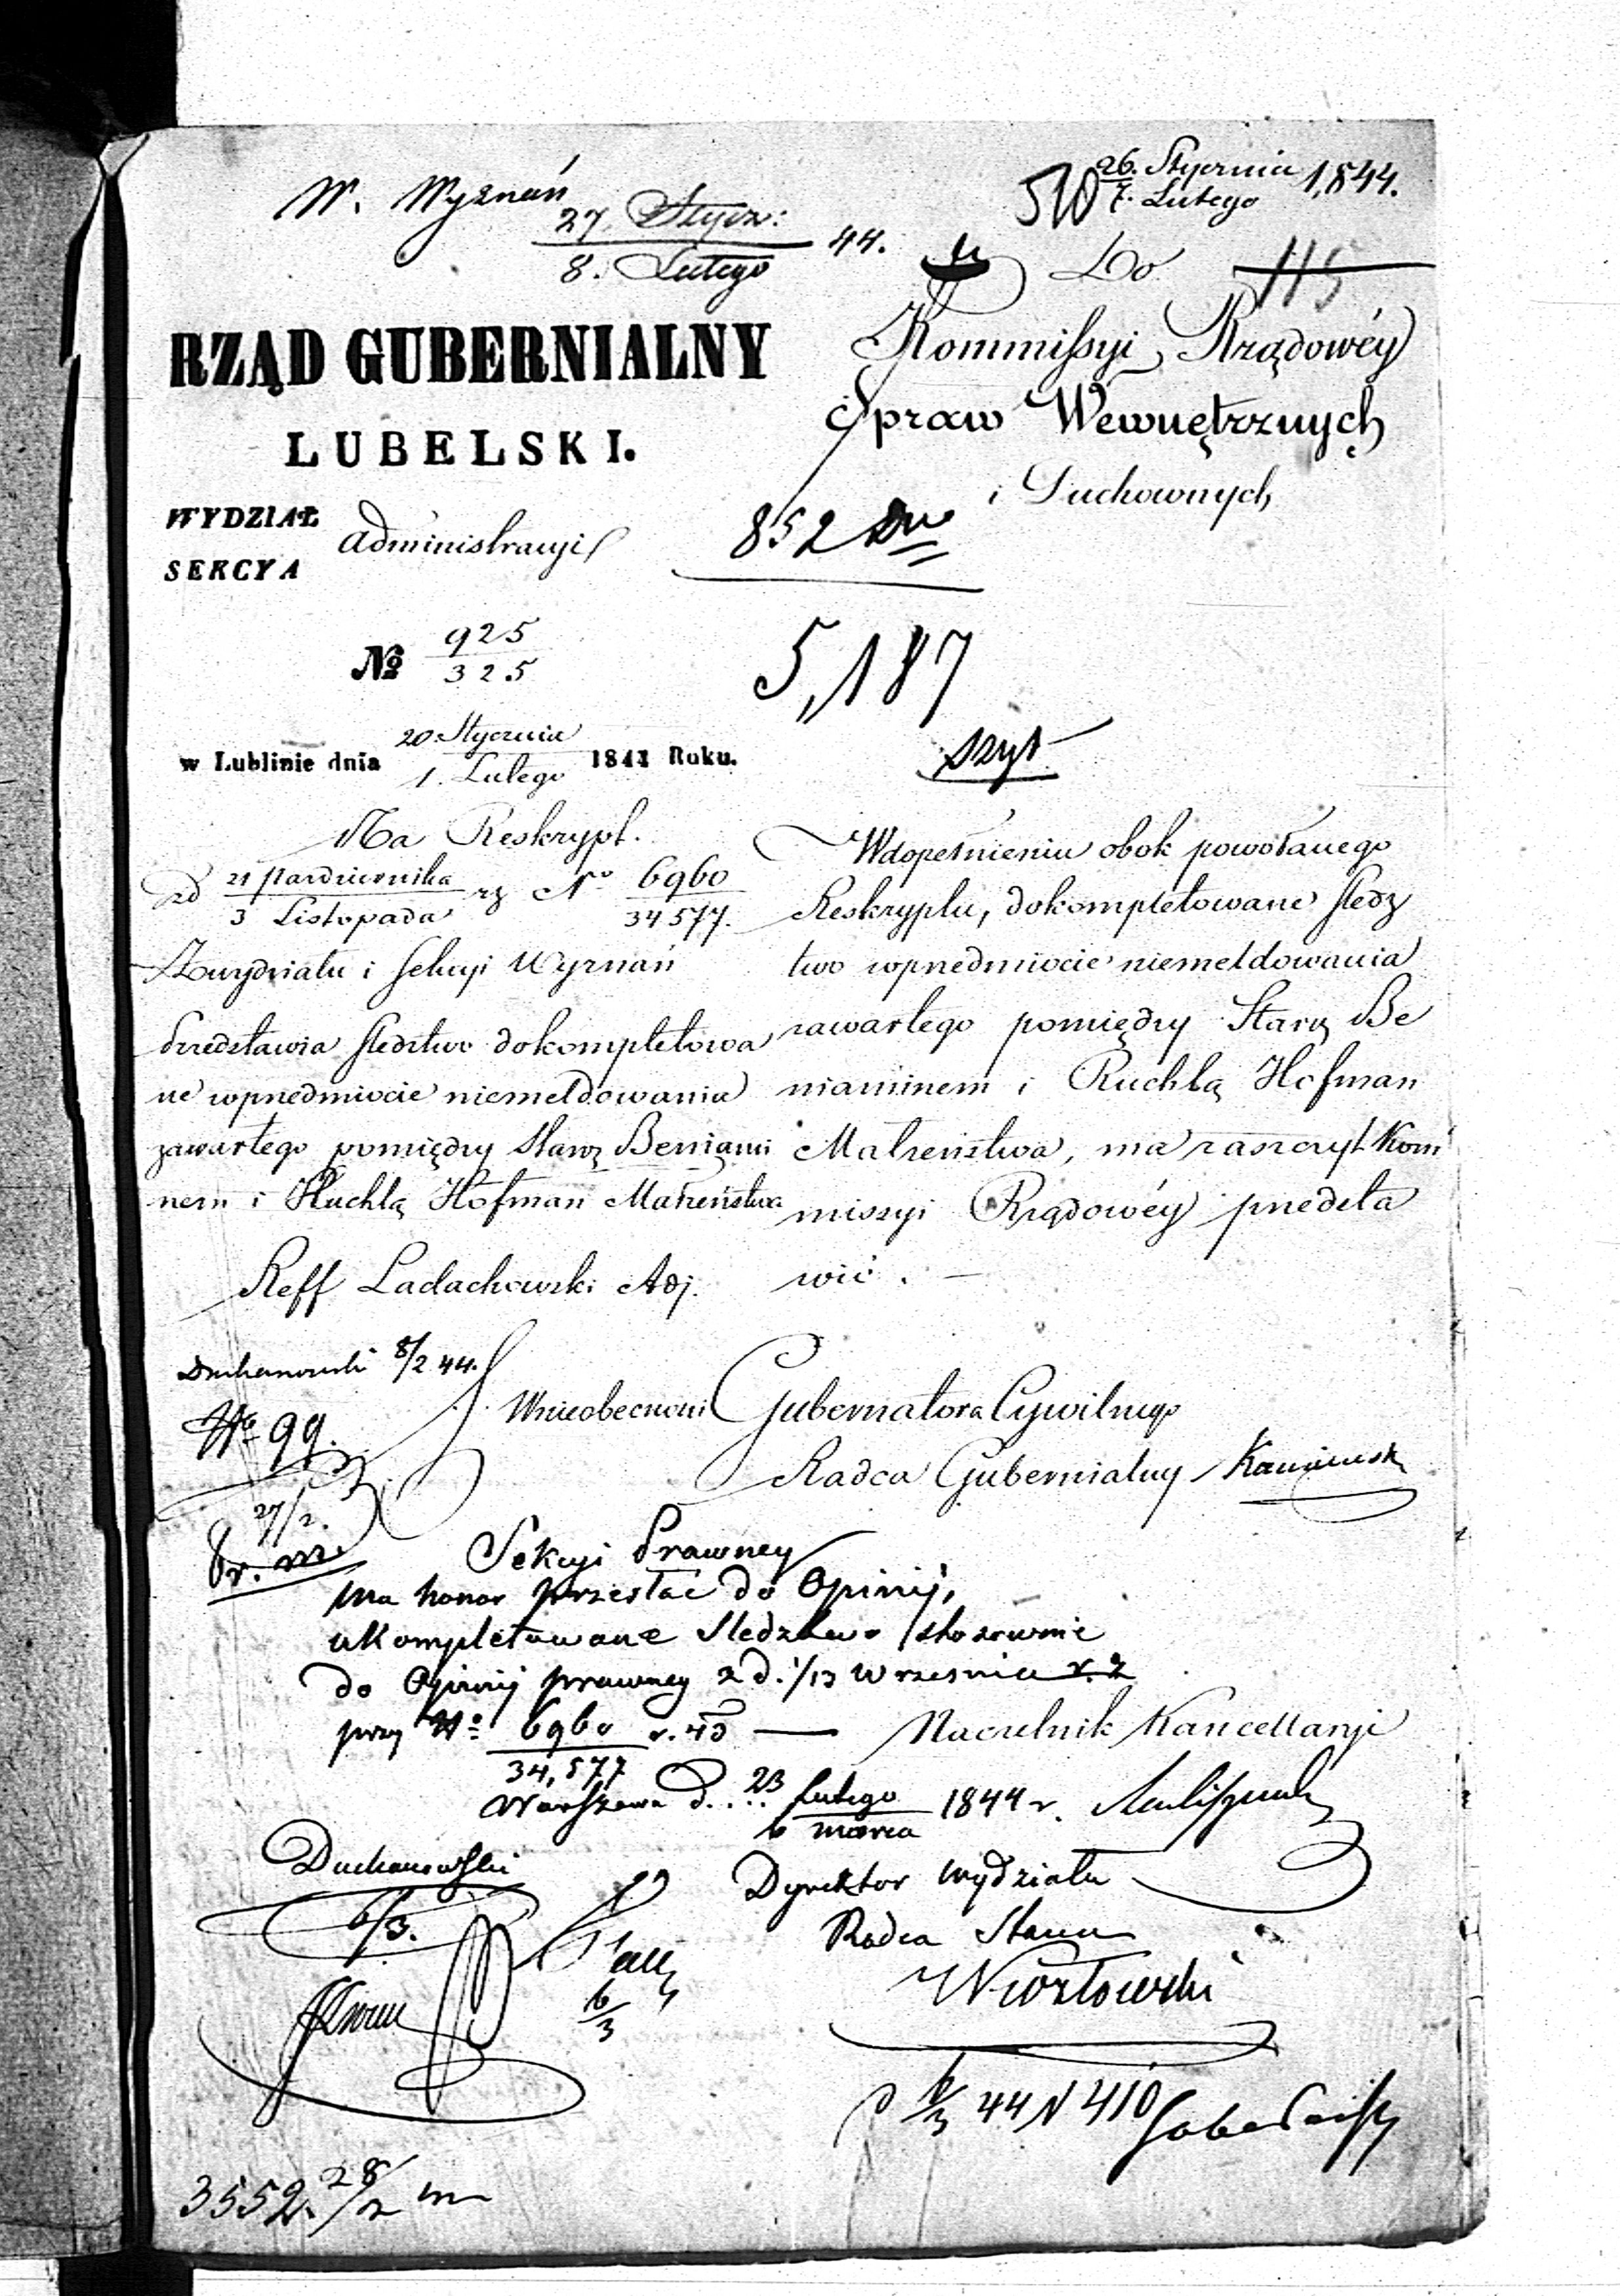 W. Wyznań
27. Stycz: 44.
8. Lutego
510 26. Stycznia 1,844.
7. Lutego
Do 115
Kommissyi Rządowéy
Spraw Wewnętrznych
i Duchownych
RZĄD GUBERNIALNY
LUBELSKI.
WYDZIAŁ
Administracyi
SEKCYA
852
№ 925
325
5,187
szyt
w Lublinie dnia 20 Stycznia 1844 Roku.
1. Lutego
Na Reskrypt.
od 21 Października rz No 6960
3 Listopada 34577.
Zwydziału i Sekcyi Wyznań
Przedstawia sledztwo dokompletowa
ne wprzedmiocie niemeldowania
zawartego pomiędzy Starz Beniami
nem i Ruchlą Hofman Małżeństwa
Reff Ladachowski Adj.
Wdopełnieniu obok powołanego
Reskryptu, dokompletowane sledz
two wprzedmiocie niemeldowania
zawartego pomiędzy Starz Be
niaminem i Ruchlą Hofman
Małżeństwa, ma zaszczyt Kom
missyi Rządowéy przedsta
wić. —
Duchanowski 8/2 44.
No 99.
27/2.
Wnieobecności Gubernatora Cywilnego
Radca Gubernialny Kamiński
Pr. m.
Sekcyi Prawney
ma honor przesłać do Opinij,
ukompletowane Sledztwo stosownie
do Opinij prawney z d. 1/13 Wrzesnia r. z
przy No 6960 r. 43 —
34,577
Naczelnik Kancellaryi
Warszawa d. 23 lutego 1844 r.
6 marca
Duchanowski
6/3.
Dyrektor Wydziału
Radca Stanu
6
3
6/3 44 N 410
3552. 28/2 m